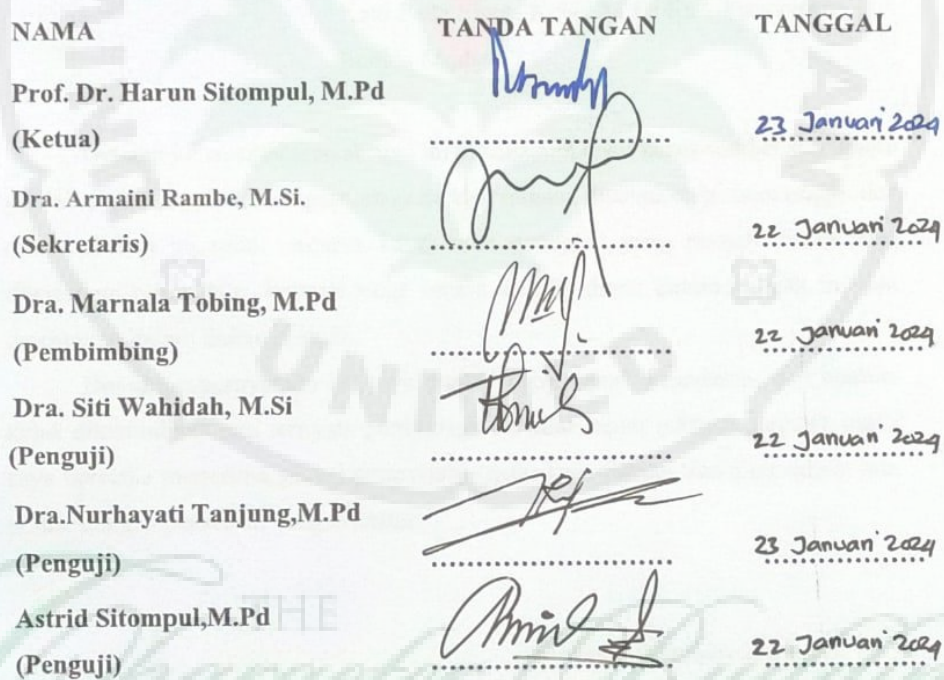 NAMA TANDA TANGAN TANGGAL
Prof. Dr. Harun Sitompul, M.Pd
(Ketua) 23 Januari 2024
Dra. Armaini Rambe, M.Si.
(Sekretaris) 22 Januari 2024
Dra. Marnala Tobing, M.Pd
(Pembimbing) 22 Januari 2024
Dra. Siti Wahidah, M.Si
(Penguji) 22 Januari 2024
Dra.Nurhayati Tanjung,M.Pd
(Penguji) 23 Januari 2024
Astrid Sitompul,M.Pd
(Penguji) 22 Januari 2024
UNIMED
THE